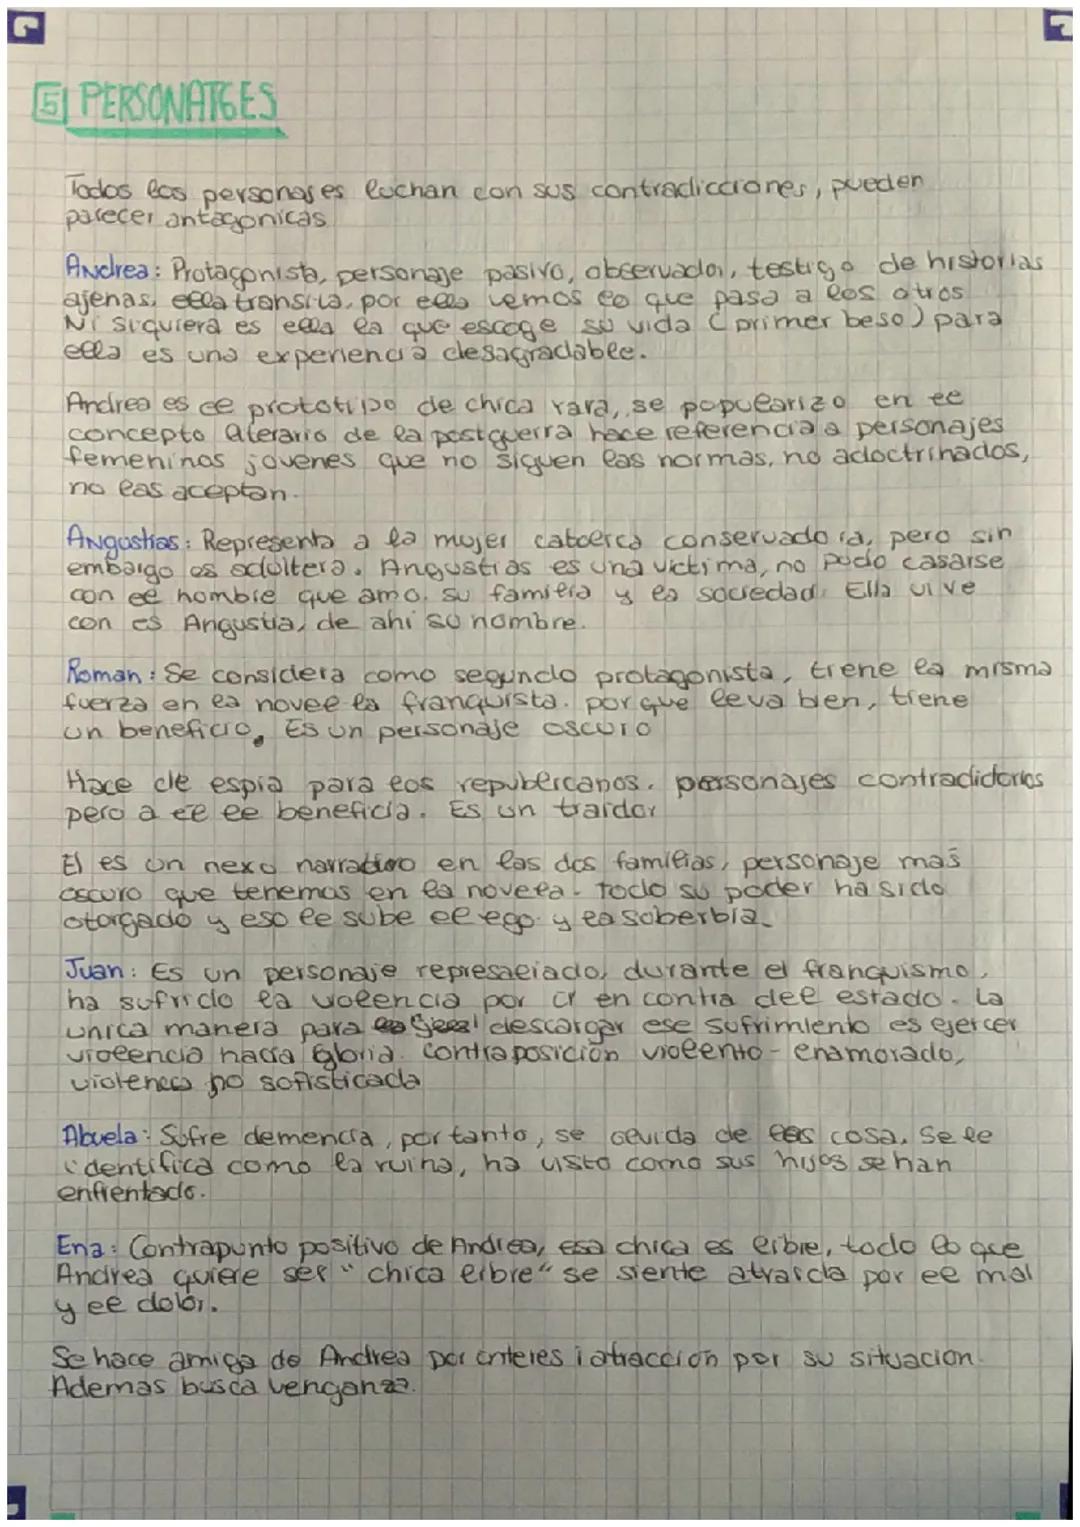 5 PERSONATGES
Todos los personajes luchan con sus contradicciones, pueden
parecer antagonicas
Andrea: Protagonista, personaje pasivo, observador, testigo de historias
ajenas, ella transita, por ella vemos lo que pasa a los otros
Ni siquiera es ella la que escoge su vida (primer beso) para
ella es una experiencia desagradable.
Andrea es el prototipo de chica rara, se popularizo en el
concepto literario de la postguerra hace referencia a personajes
femeninos jovenes que no siguen las normas, no adoctrinados,
no las aceptan.
Angustias: Representa a la mujer catolica conservadora, pero sin
embargo es adultera. Angustias es una victima, no pudo casarse
con el hombre que amo. su familia y la sociedad. Ella vive
con es Angustia, de ahi su nombre.
Roman: Se considera como segundo protagonista, tiene la misma
fuerza en la novel la franquista. porque leva bien, tiene
un beneficio. Es un personaje oscuro
Hace de espia para los republicanos. personajes contradictorios
pero a el le beneficia. Es un traidor
El es un nexo narrativo en las dos familias, personaje mas
oscuro que tenemos en la novela. Todo su poder ha sido
otorgado y eso le sube el ego y la soberbia.
Juan: Es un personaje durante el franquismo,
ha sufrido la volencia por en contra del estado. La
unica manera para descargar ese sufrimiento es ejercer
violencia hacia Gloria. Contraposición violento - enamorado,
violencia no sofisticada
Abuela: Sufre demencia, por tanto, se olvida de las cosa. Se le
identifica como la ruina, ha visto como sus hijos se han
enfrentado.
Ena: Contrapunto positivo de Andrea, esa chica es libre, todo lo que
Andrea quiere ser "chica libre" se siente atraida por el mal
y el dolor.
Se hace amiga de Andrea por interes i atracción por su situacion.
Ademas busca venganza.